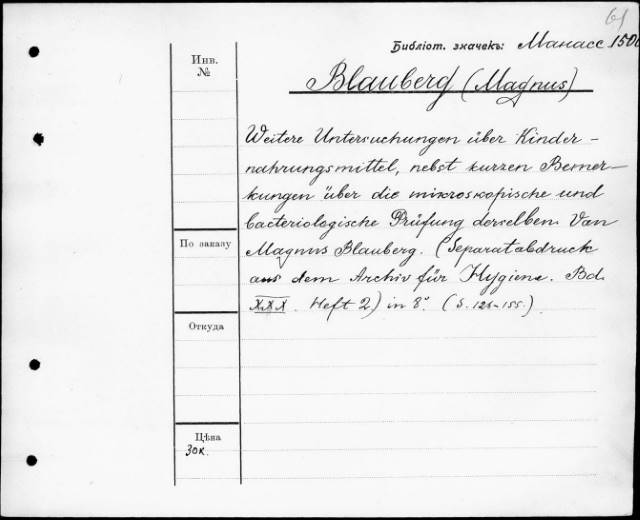 61
Библіот. значекъ: Манасс 1500
Инв.
№
Blauberg (Magnus)
Weitere Untersuchungen über Kinder-
nahrungsmittel, nebst kurzen Bemer-
kungen über die mikroskopische und
bacteriologische Prüfung derselben. Van
По заказу
Magnus Blauberg. (Separatabdruck
aus dem Archiv für Hygiene. Bd.
XXX. Heft 2) in 8°. (S. 125-155.)
Откуда
Цѣна
30к.